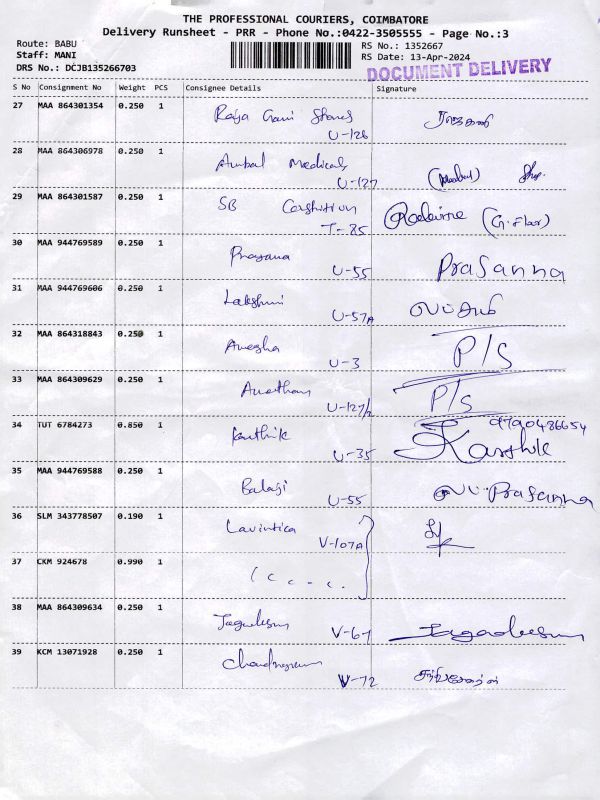 THE PROFESSIONAL COURIERS, COIMBATORE
Delivery Runsheet - PRR - Phone No.:0422-3505555 - Page No.:3
Route: BABU
Staff: MANI
DRS No.: DCJB135266703
RS No.: 1352667
RS Date: 13-Apr-2024
DOCUMENT DELIVERY
S No Consignment No Weight PCS Consignee Details Signature
27 MAA 864301354 0.250 1
U-126
28 MAA 864306978 0.250 1 Ambal Medicals
U-127
29 MAA 864301587 0.250 1 SB
T-85
30 MAA 944769589 0.250 1
U-55 Prasanna
31 MAA 944769606 0.250 1 Lakshmi
U-57A
32 MAA 864318843 0.250 1
U-3 P/S
33 MAA 864309629 0.250 1
U-127/2 P/S
34 TUT 6784273 0.850 1 Karthik 9790486654
U-35 Karthik
35 MAA 944769588 0.250 1 Balaji
U-55 Prasanna
36 SLM 343778507 0.190 1 Lavintica
V-107A
37 CKM 924678 0.990 1
38 MAA 864309634 0.250 1 Jagadeesan
V-67 Jagadeesan
39 KCM 13071928 0.250 1
V-72